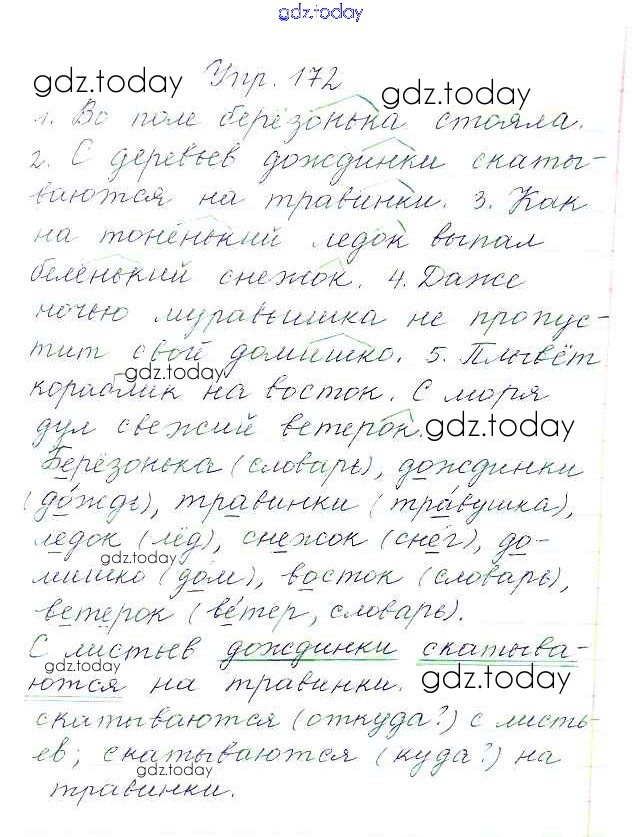 gdz.today
gdz.today Упр. 172 gdz.today
1. Во поле берёзонька стояла.
2. С деревьев дождинки скаты-
ваются на травинки. 3. Как
на тоненький ледок выпал
беленький снежок. 4. Даже
ночью муравьишка не пропус-
тит свой домишко. 5. Плывёт
gdz.today
кораблик на восток. С моря
дул свежий ветерок. gdz.today
Берёзонька (словарь), дождинки
(дождь), травинки (травушка),
ледок (лёд), снежок (снег), до-
gdz.today
мишко (дом), восток (словарь),
ветерок (ветер, словарь).
С листьев дождинки скатыва-
gdz.today
ются на травинки. gdz.today
скатываются (откуда?) с листь-
ев; скатываются (куда?) на
gdz.today
травинки.